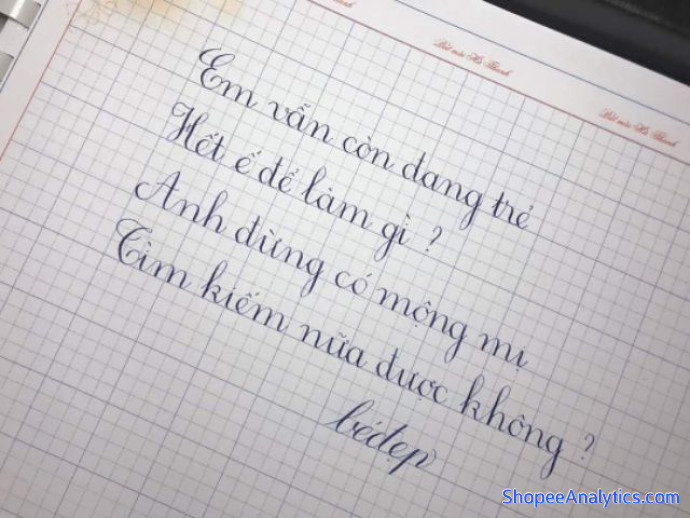 Bút mài Hà Thanh
Bút mài Hà Thanh
Em vẫn còn đang trẻ
Hết ế để làm gì ?
Anh đừng có mộng mị
Tìm kiếm nữa được không ?
bé đẹp
ShopeeAnalytics.com